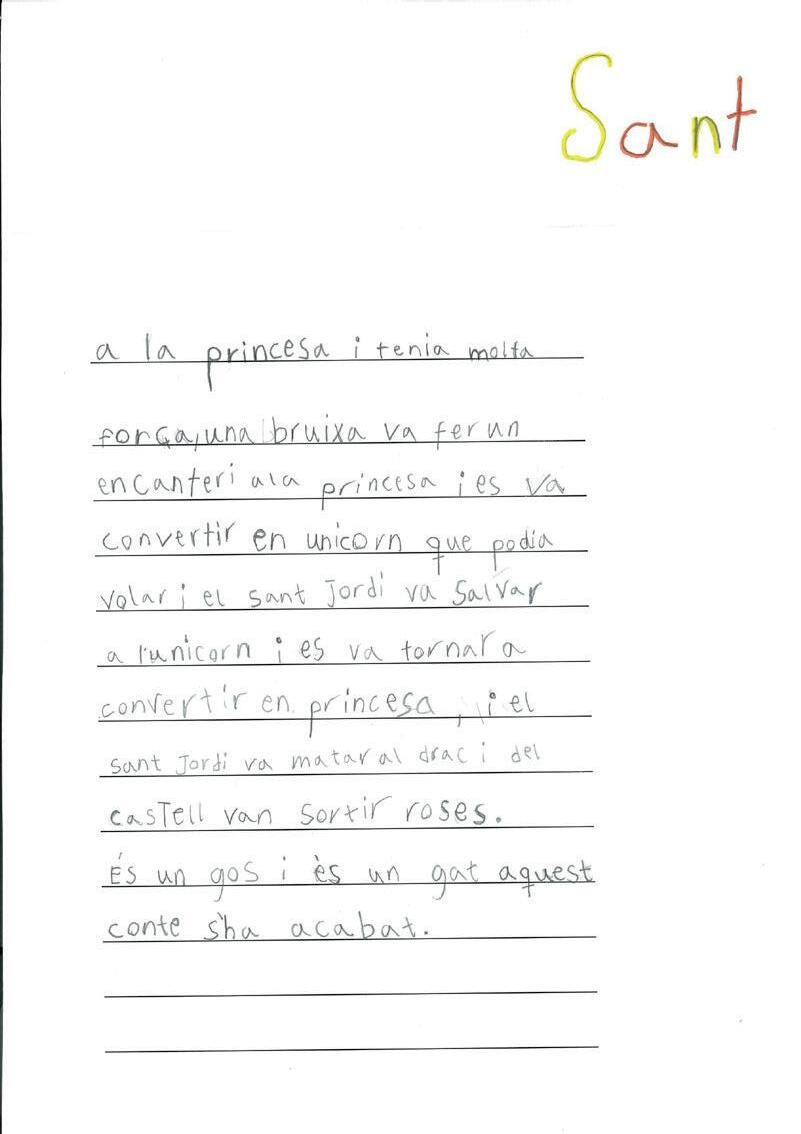 Sant
a la princesa i tenia molta
força, una bruixa va fer un
encanteri ala princesa i es va
convertir en unicorn que podia
volar i el sant Jordi va salvar
a l'unicorn i es va tornar a
convertir en princesa, i el
sant Jordi va matar al drac i del
castell van sortir roses.
És un gos i ès un gat aquest
conte s'ha acabat.